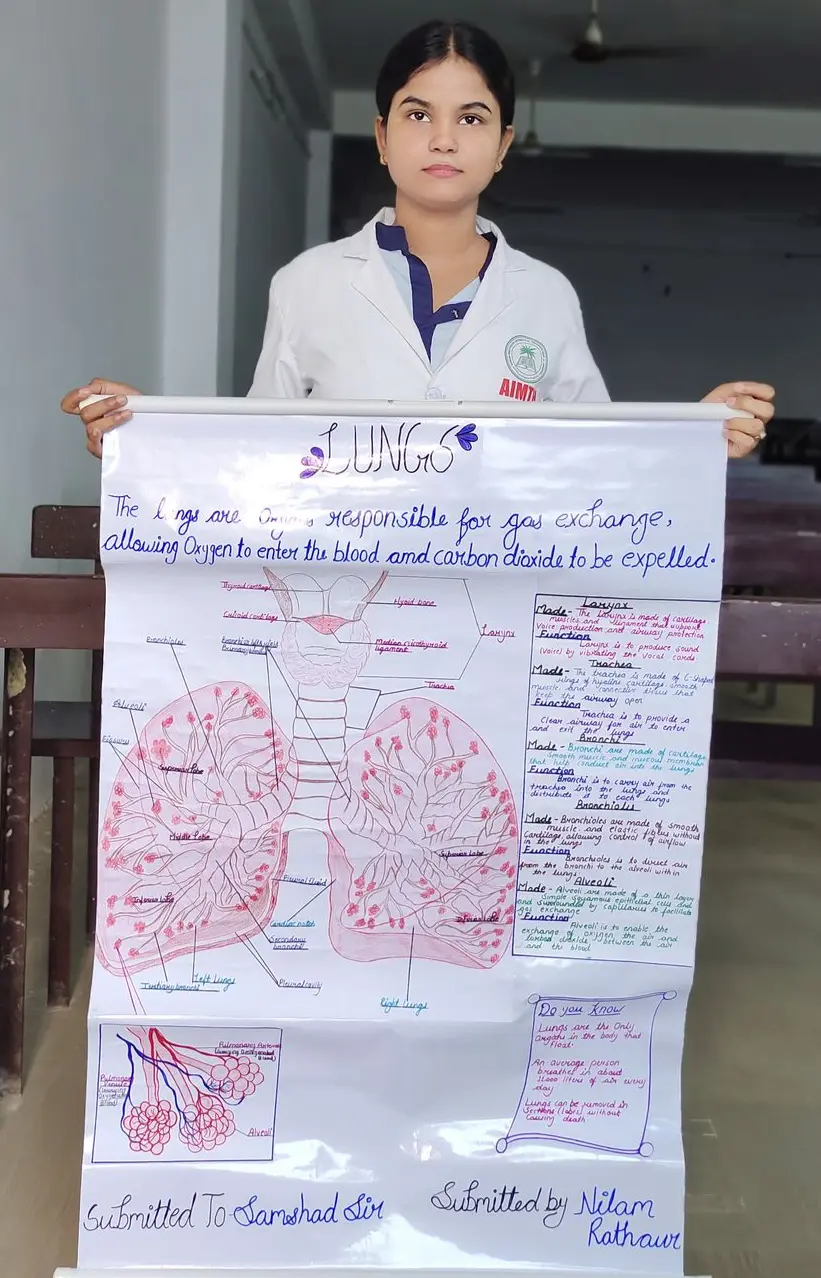 AIMT
LUNGS
The lungs are Organs responsible for gas exchange,
allowing Oxygen to enter the blood and carbon dioxide to be expelled.
Thyroid cartilage
Hyoid bone
Cricoid cartilage
Larynx
Bronchioles
Median cricothyroid
ligament
Trachia
Alveoli
Fissure
Superior lobe
Middle lobe
Superior lobe
Inferior lobe
Pleural fluid
Inferior lobe
Cardiac notch
Secondary
bronchi
Left lungs
Tertiary bronchi
Pleural cavity
Right lungs
Larynx
Made - The Larynx is made of cartilage
muscles and ligament that support
voice production and airway protection
Function
Larynx is to produce sound
(voice) by vibrating the vocal cords
Trachea
Made - The trachea is made of C-shaped
rings of hyaline cartilage smooth
muscle and connective tissue that
keep the airway open
Function
Trachea is to provide a
clear airway for air to enter
and exit the lungs
Bronchi
Made - Bronchi are made of cartilage
smooth muscle and mucous membrane
that help conduct air into the lungs
Function
Bronchi is to carry air from the
trachea into the lungs and
distribute it to each lungs
Bronchiolis
Made - Bronchioles are made of smooth
muscle and elastic fibres without
Cartilage, allowing control of airflow
in the lungs
Function
Bronchioles is to direct air
from the bronchi to the alveoli within
the lungs
Alveoli
Made - Alveoli are made of a thin layer
simple squamous epithelial cells and
and surrounded by capillaries to facilitate
gas exchange
Function
Alveoli is to enable the
exchange of oxygen the air and
carbon dioxide between the air
and the blood
Do you know
Lungs are the Only
Organs in the body that
float.
An average person
breathes in about
11000 liters of air every
day
Lungs can be removed in
Sections (lobes) without
causing death
Pulmonary
Alveoli
Submitted To Samshad Sir
Submitted by Nilam
Rathaur